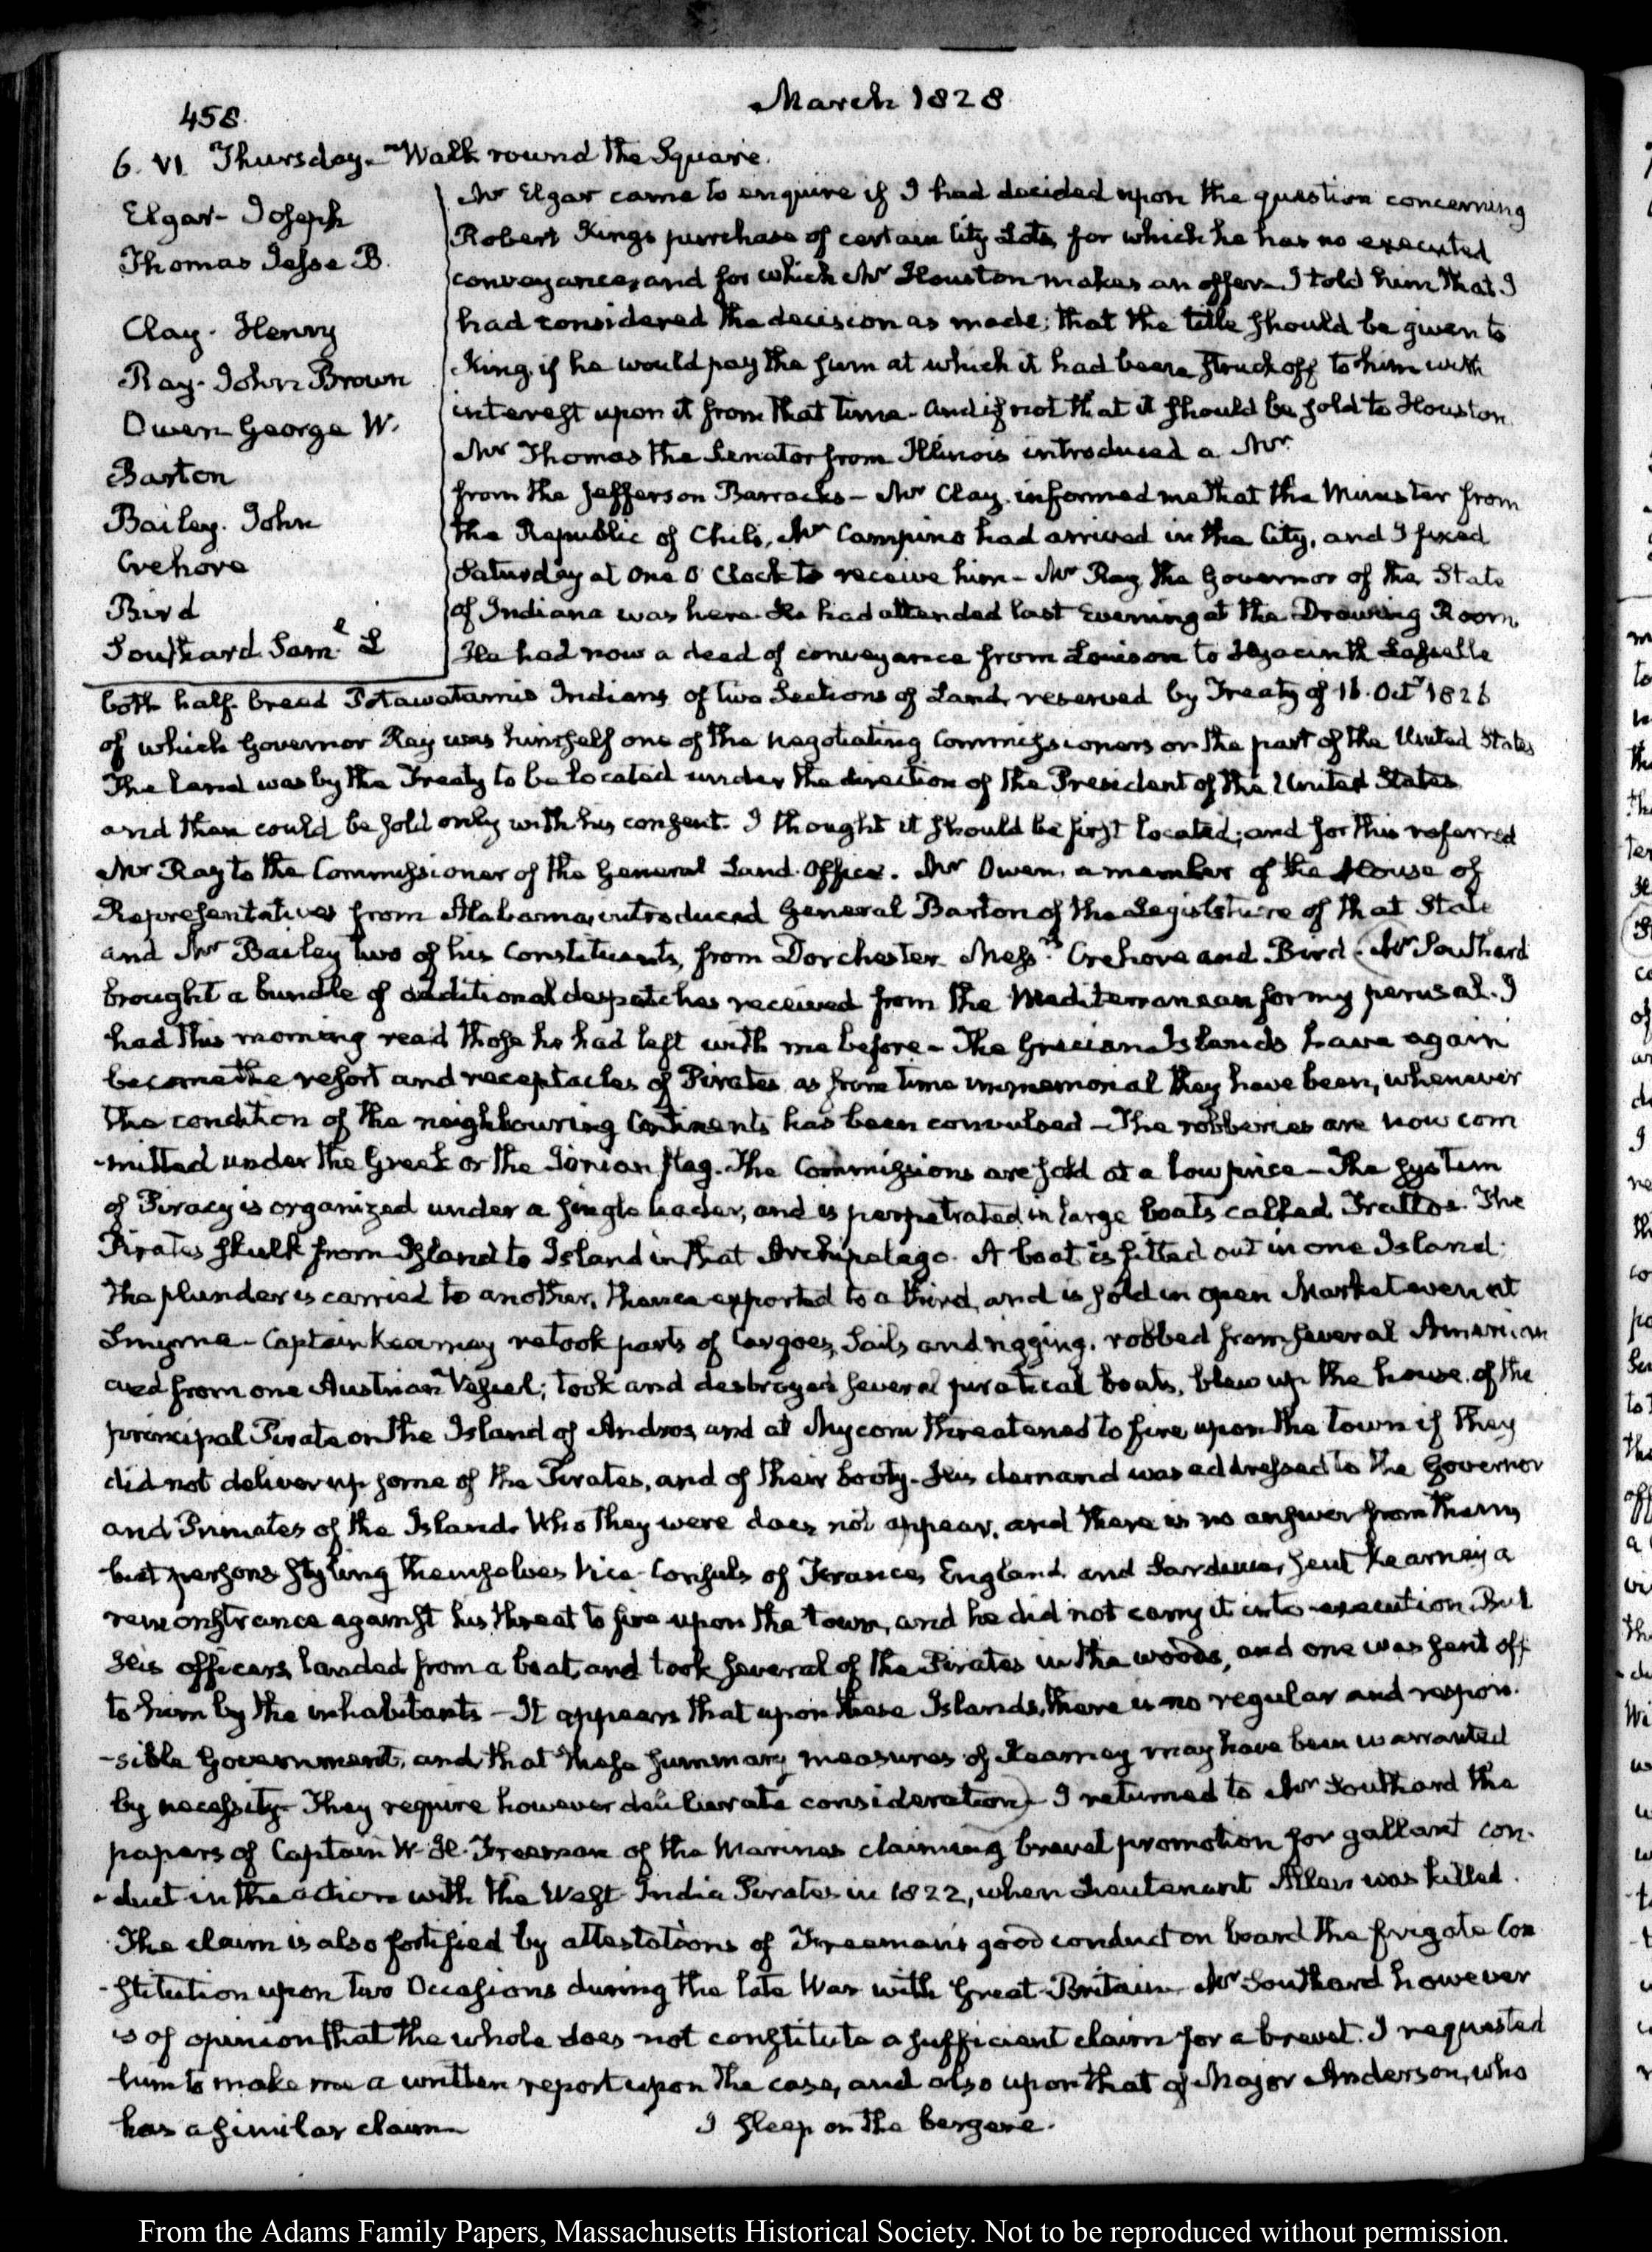 458.
March 1828
6. VI. Thursday. Walk round the Square.
Elgar - Joseph
Thomas Jesse B.
Clay. Henry
Ray. John Brown
Owen George W.
Barton
Bailey. John
Crehore
Bird
Southard Saml. L
Mr Elgar came to enquire if I had decided upon the question concerning
Robert Kings purchase of certain City Lots, for which he has no executed
conveyance, and for which Mr Houston makes an offer. I told him that I
had considered the decision as made; that the title should be given to
King, if he would pay the sum at which it had been struck off to him with
interest upon it from that time - and if not that it should be sold to Houston.
Mr Thomas the Senator from Illinois introduced a Mr
from the Jefferson Barracks - Mr Clay informed me that the Minister from
the Republic of Chili, Mr Campino had arrived in the City, and I fixed
Saturday at One O'Clock to receive him - Mr Ray the Governor of the State
of Indiana was here. He had attended last Evening at the Drawing Room.
He had now a deed of conveyance from Louison to Hyacinth Lasselle
both half-breed Potawatamie Indians, of two Sections of Land, reserved by Treaty of 16. Octr 1826
of which Governor Ray was himself one of the negotiating Commissioners on the part of the United States
The land was by the Treaty to be located under the direction of the President of the United States
and then could be sold only with his consent. I thought it should be first located; and for this referred
Mr Ray to the Commissioner of the General Land Office. Mr Owen, a member of the House of
Representatives from Alabama, introduced General Barton of the Legislature of that State
and Mr Bailey two of his Constituents, from Dorchester Messrs. Crehore and Bird. Mr Southard
brought a bundle of additional despatches received from the Mediterranean for my perusal. I
had this morning read those he had left with me before - The Grecian Islands have again
become the resort and receptacles of Pirates as from time immemorial they have been, whenever
the condition of the neighbouring Continents has been convulsed - The robberies are now com
-mitted under the Greek or the Ionian flag. The Commissions are sold at a low price - The system
of Piracy is organized under a single leader, and is perpetrated in large boats called Trattos. The
Pirates skulk from Island to Island in that Archipelago. A boat is fitted out in one Island.
The plunder is carried to another, thence exported to a third, and is sold in open Market even at
Smyrna - Captain Kearney retook parts of Cargoes, Sails and rigging, robbed from several American
and from one Austrian Vessel; took and destroyed several piratical boats, blew up the house of the
principal Pirate on the Island of Andros, and at Myconi threatened to fire upon the Town if they
did not deliver up some of the Pirates, and of their booty. His demand was addressed to the Governor
and Primates of the Island. Who they were does not appear, and there is no answer from them,
but persons styling themselves Vice-Consuls of France, England and Sardinia, sent Kearney a
remonstrance against his threat to fire upon the town, and he did not carry it into execution. But
His officers, landed from a boat, and took several of the Pirates in the woods, and one was sent off
to him by the inhabitants - It appears that upon these Islands, there is no regular and respon.
-sible Government, and that these summary measures of Kearney may have been warranted
by necessity. They require however deliberate consideration - I returned to Mr Southard the
papers of Captain W. H. Freeman of the Marines claiming brevet promotion for gallant con-
-duct in the action with the West India Pirates in 1822, when Lieutenant Allen was killed.
The claim is also fortified by attestations of Freeman's good conduct on board the frigate Con
-stitution upon two Occasions during the late War with Great-Britain. Mr Southard however
is of opinion that the whole does not constitute a sufficient claim for a brevet. I requested
him to make me a written report upon the case, and also upon that of Major Anderson, who
has a similar claim
I sleep on the bergere.
From the Adams Family Papers, Massachusetts Historical Society. Not to be reproduced without permission.